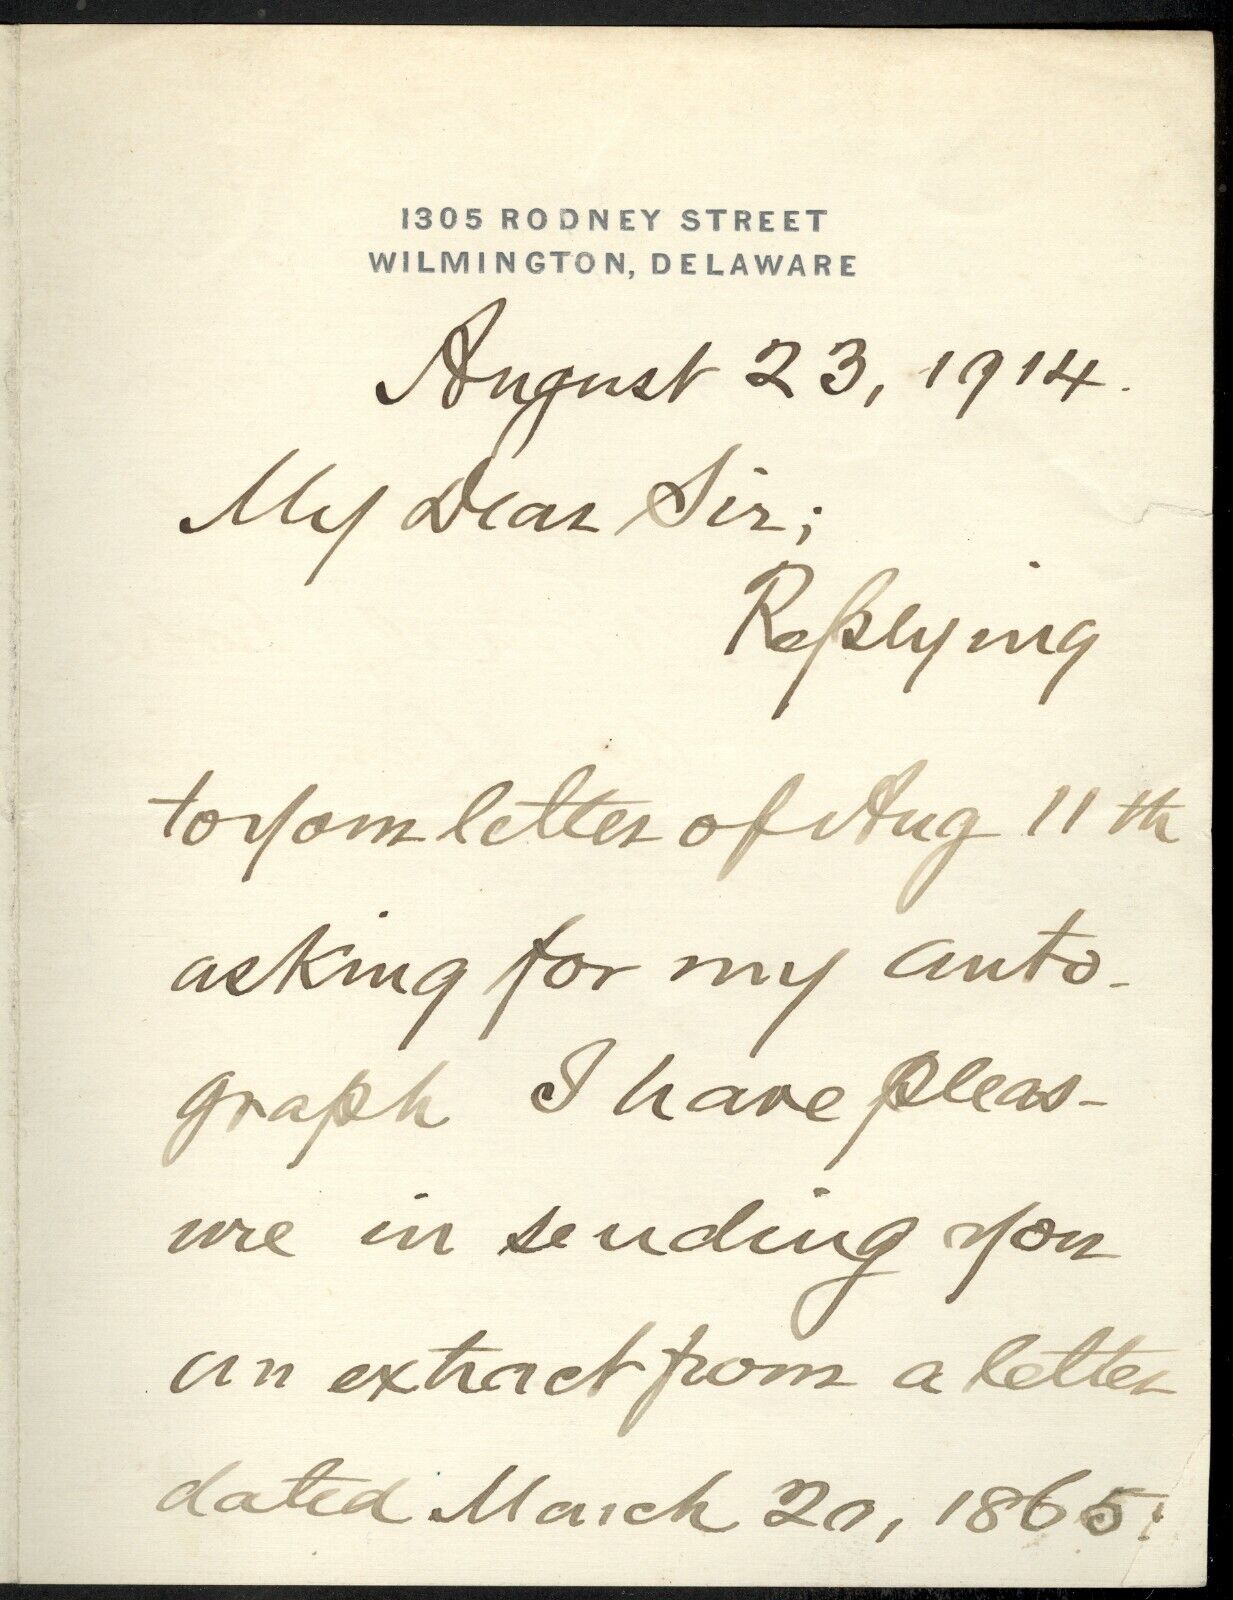 1305 RODNEY STREET
WILMINGTON, DELAWARE
August 23, 1914.
My Dear Sir;
Replying
to your letter of Aug 11th
asking for my auto-
graph I have pleas-
ure in sending you
an extract from a letter
dated March 20, 1865: